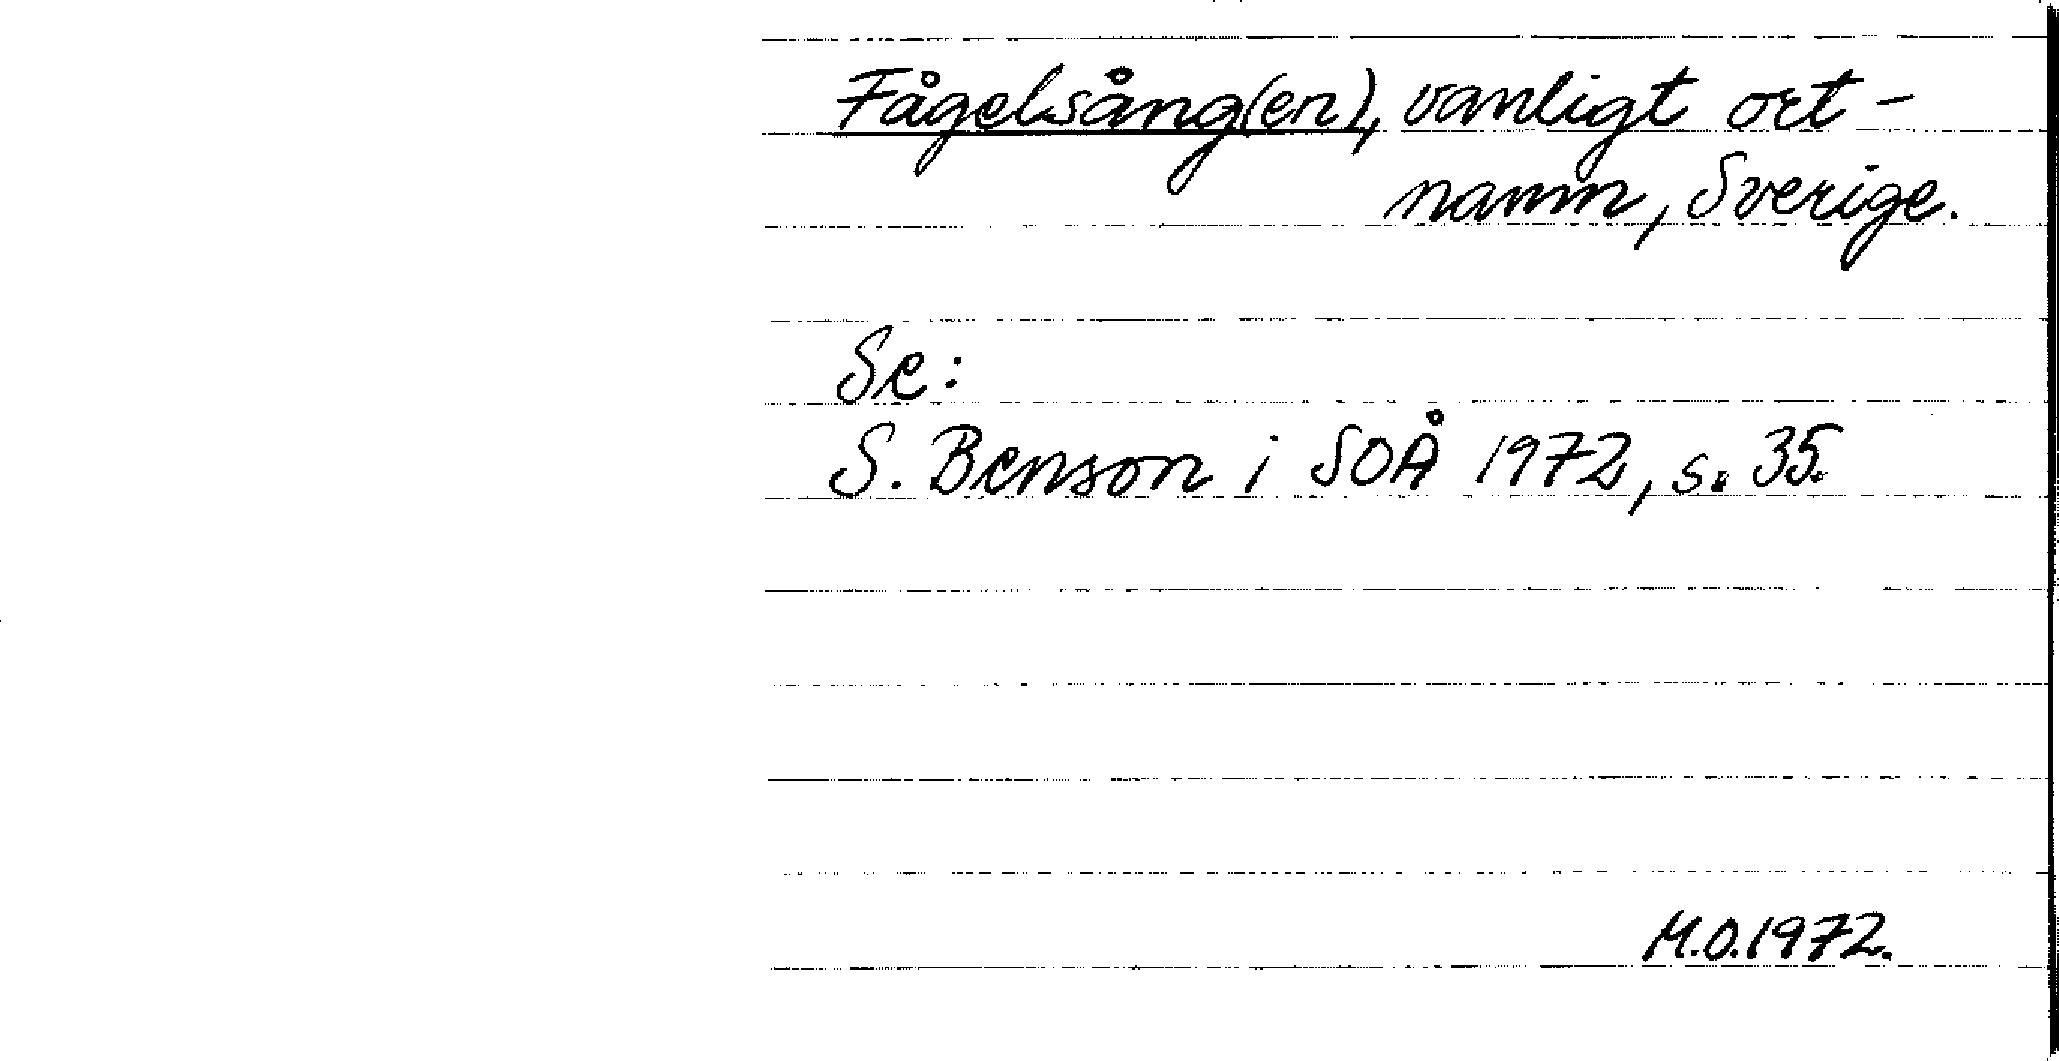 Fågelsång(en), vanligt ort-
namn, Sverige.
Se:
S. Benson i SOÅ 1972, s. 35.
M.O. 1972.